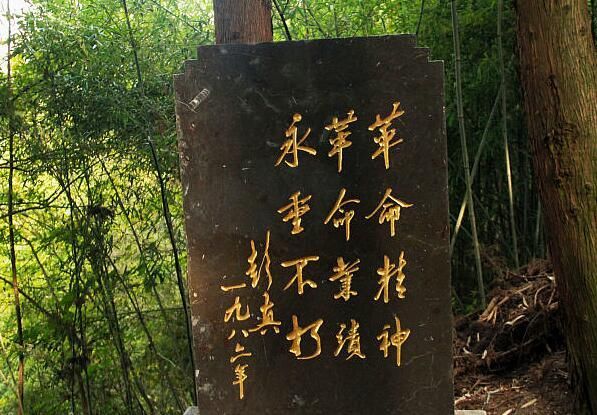 革命精神
革命业绩
永垂不朽
彭真
一九八二年